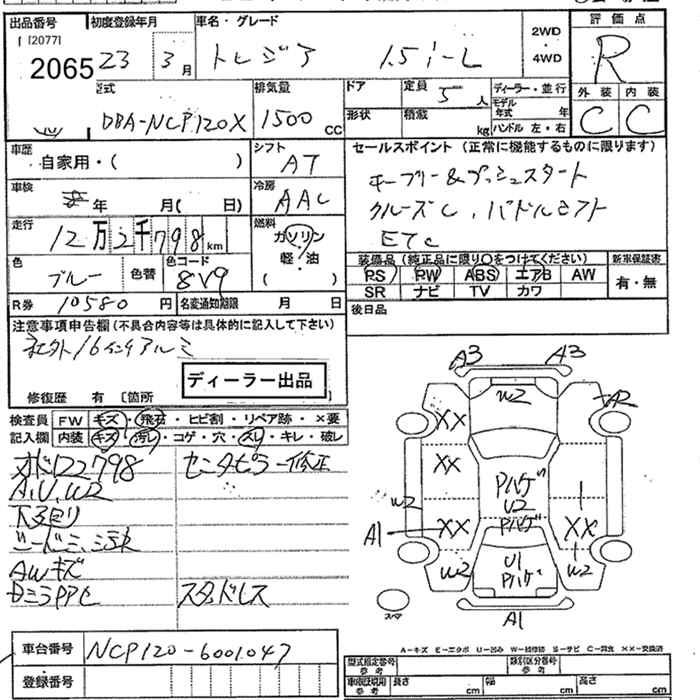 出品番号 初度登録年月 車名・グレード 評価点
[2077] 2065 23 3月 トレジア 1.5i-L 2WD・4WD R
型式 排気量 ドア 定員 5人 ディーラー・並行 外装 内装
DBA-NCP120X 1500CC 形状 積載 kg モデル年式 年 ハンドル 左・右 C C
車歴 自家用・( ) シフト AT セールスポイント (正常に機能するものに限ります)
車検 年 月( 日) 冷房 AAC キーフリー&プッシュスタート
走行 12万2千798km 燃料 ガソリン 軽・油 ( ) クルーズC、パドルシフト
ETC
色 ブルー 色替 色コード 8V9 装備品 (純正品に限り○をつけてください) 新車保証書
PS PW ABS エアB AW 有・無
SR ナビ TV カワ
R券 10580円 名変通知期限 月 日 後日品
注意事項申告欄 (不具合内容等は具体的に記入して下さい)
社外16インチアルミ
ディーラー出品
修復歴 有 〔箇所 〕
検査員 FW キズ・飛石・ヒビ割・リペア跡・×要
記入欄 内装 キズ・汚レ・コゲ・穴・スレ・キレ・破レ
122798 センタピラー修正
A.U.W2
下回り
AWキズ
スタッドレス
A3 A3
W2
XX
XX
W2 Pハゲ U2 Pハゲ
A1 XX XX
W2 U1 Pハゲ W2
スペア A1
A-キズ E-エクボ U-凹み W-補修跡 S-サビ C-腐食 XX-交換済
車台番号 NCP120-6001047
登録番号
型式指定番号 参考 類別区分番号 参考
車検証現用 参考 長さ cm 幅 cm 高さ cm